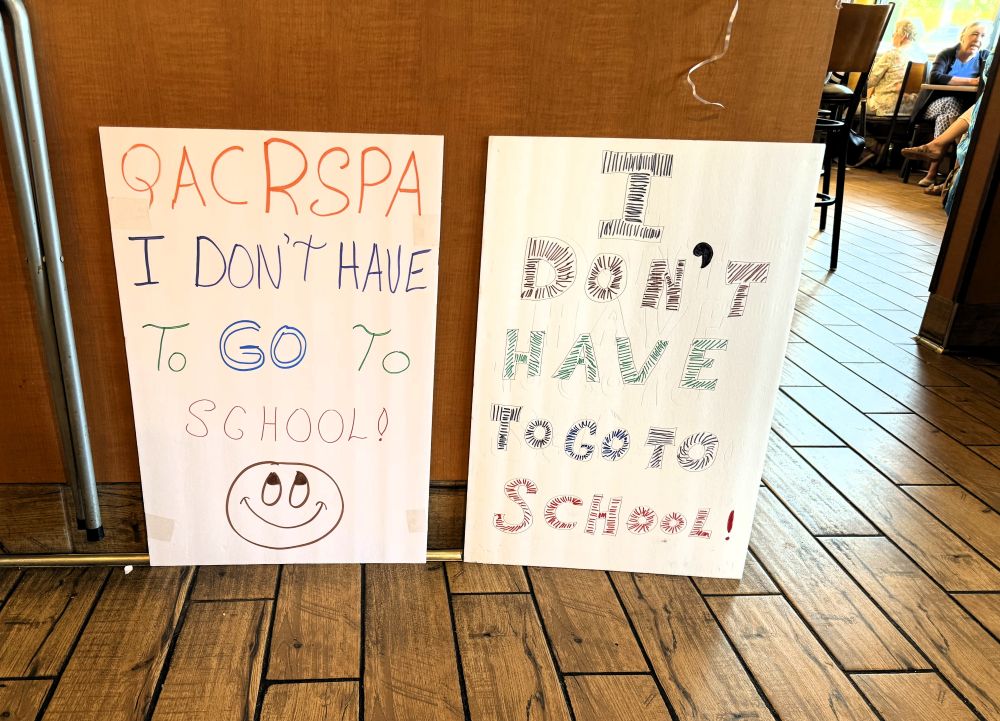 QACRSPA
I DON'T HAVE
To GO To
SCHOOL!
I
DON'T
HAVE
To Go To
SCHOOL!